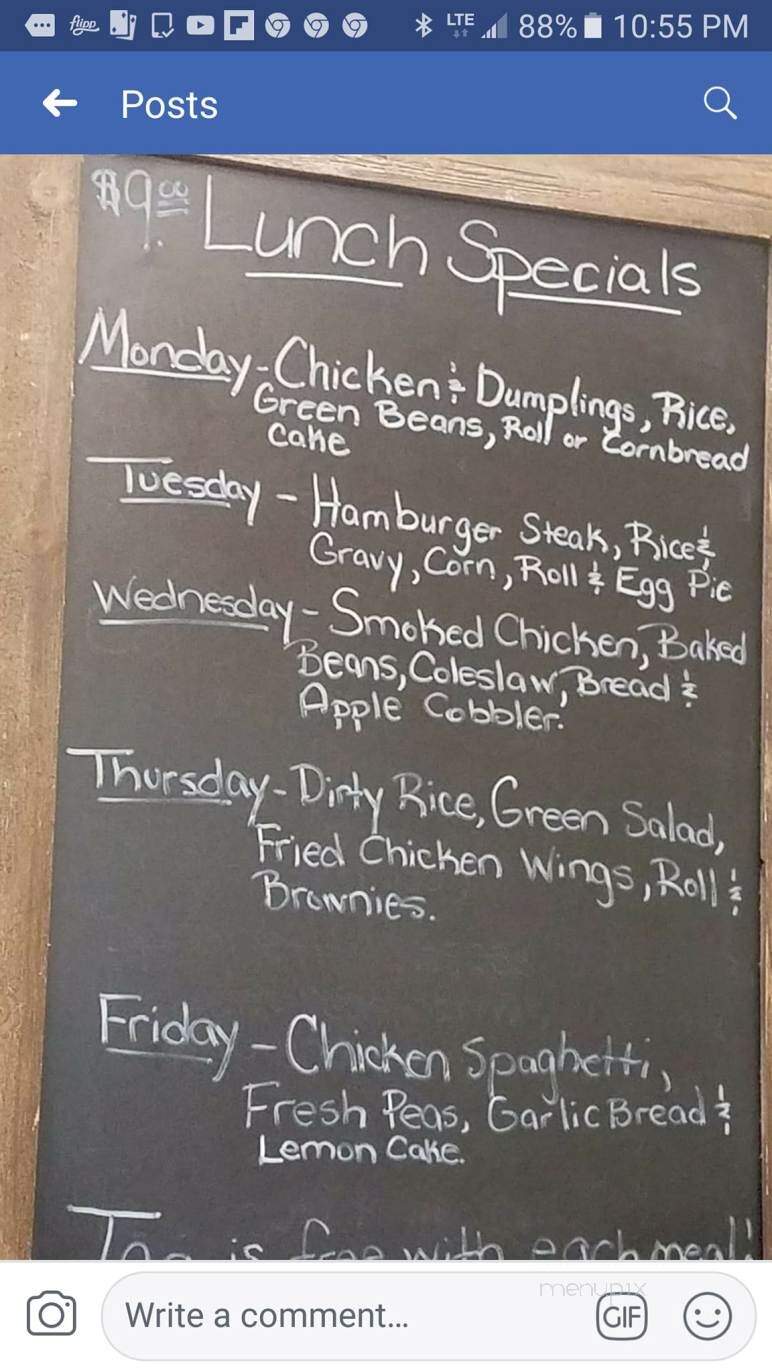 flipp LTE 88% 10:55 PM
Posts
$9.00 Lunch Specials
Monday - Chicken & Dumplings, Rice,
Green Beans, Roll or Cornbread
Cake
Tuesday - Hamburger Steak, Rice &
Gravy, Corn, Roll & Egg Pie
Wednesday - Smoked Chicken, Baked
Beans, Coleslaw, Bread &
Apple Cobbler.
Thursday - Dirty Rice, Green Salad,
Fried Chicken Wings, Roll &
Brownies.
Friday - Chicken Spaghetti,
Fresh Peas, Garlic Bread &
Lemon Cake.
is free with each meal!
menupix
Write a comment... GIF